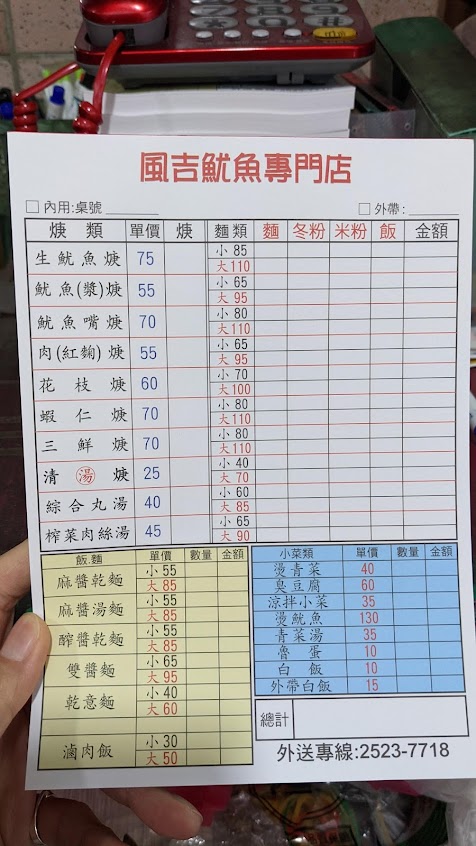 風吉魷魚專門店
□ 內用:桌號 ______ □ 外帶:______
焿 類 單價 焿 麵類 麵 冬粉 米粉 飯 金額
生魷魚焿 75 小 85
大110
魷魚(漿)焿 55 小 65
大 95
魷魚嘴焿 70 小 80
大110
肉(紅麴)焿 55 小 65
大 95
花枝焿 60 小 70
大100
蝦仁焿 70 小 80
大110
三鮮焿 70 小 80
大110
清湯焿 25 小 40
大 70
綜合丸湯 40 小 60
大 85
榨菜肉絲湯 45 小 65
大 90
飯.麵 單價 數量 金額
麻醬乾麵 小 55
大 85
麻醬湯麵 小 55
大 85
醡醬乾麵 小 55
大 85
雙醬麵 小 65
大 95
乾意麵 小 40
大 60
滷肉飯 小 30
大 50
小菜類 單價 數量 金額
燙青菜 40
臭豆腐 60
涼拌小菜 35
燙魷魚 130
青菜湯 35
魯蛋 10
白飯 10
外帶白飯 15
總計
外送專線:2523-7718